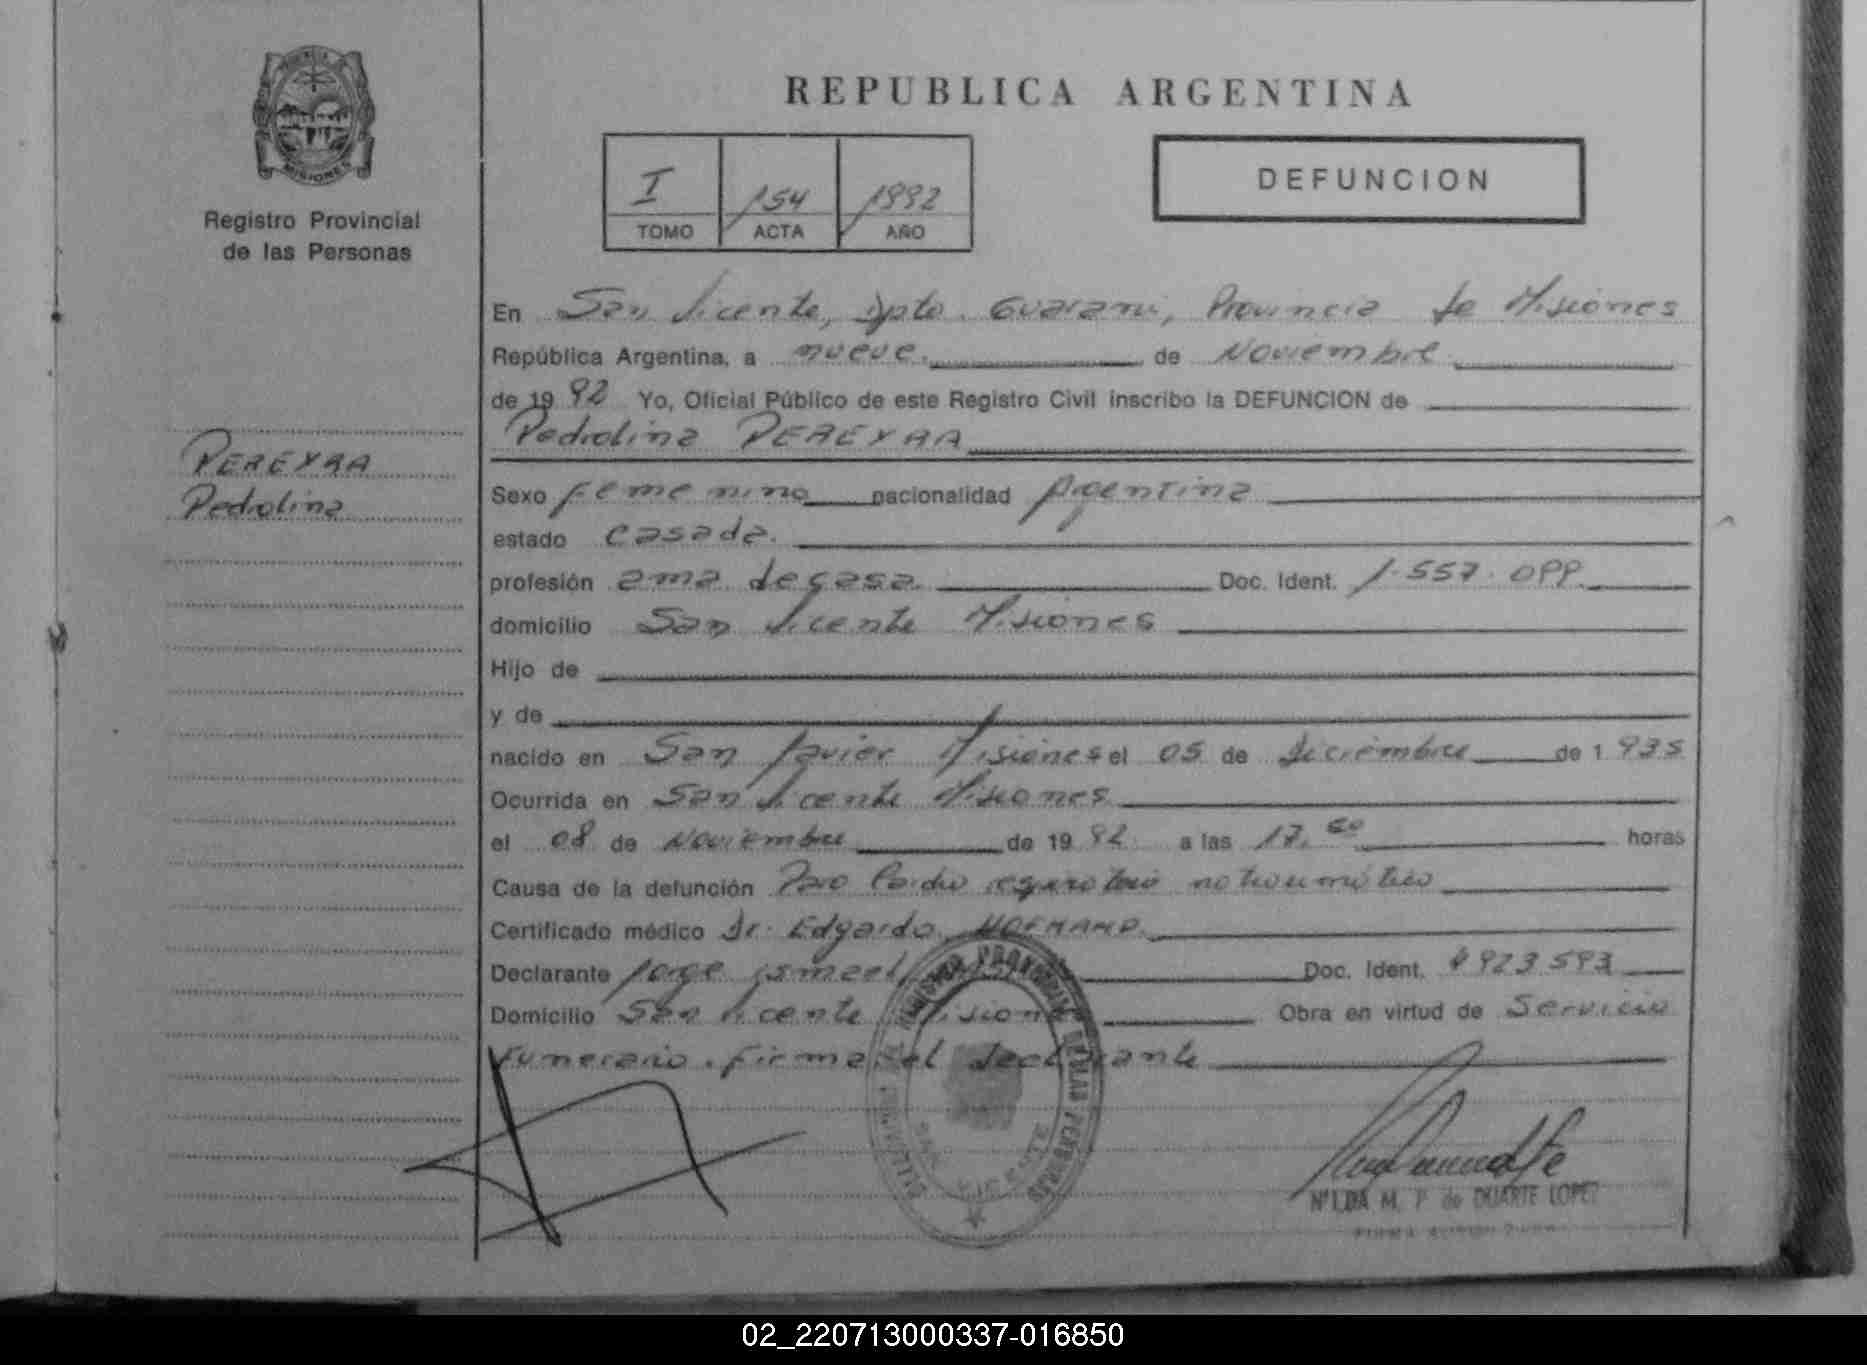 PROVINCIA DE
MISIONES
Registro Provincial
de las Personas
PEREYRA
Pedrolina
REPUBLICA ARGENTINA
I 154 1992
TOMO ACTA AÑO
DEFUNCION
En San Vicente, Dpto. Guarani, Provincia de Misiones
República Argentina, a nueve. de Noviembre
de 19 92 Yo, Oficial Público de este Registro Civil inscribo la DEFUNCION de
Pedrolina PEREYRA
Sexo femenino nacionalidad Argentina
estado casada.
profesión ama de casa. Doc. Ident. 1.557.
domicilio San Vicente Misiones
Hijo de
y de
nacido en San Javier Misiones el 05 de Diciembre de 1 935
Ocurrida en San Vicente Misiones
el 08 de Noviembre de 19 92 a las 17, horas
Causa de la defunción Paro Cardio respiratorio no traumático
Certificado médico Dr. Edgardo
Declarante Jorge Ismael Doc. Ident. 923593
Domicilio San Vicente Misiones Obra en virtud de Servicio
Funerario. firma el declarante
REGISTRO PROVINCIAL DE LAS PERSONAS
SAN VICENTE
MISIONES
M. P. de DUARTE LOPEZ
02_220713000337-016850